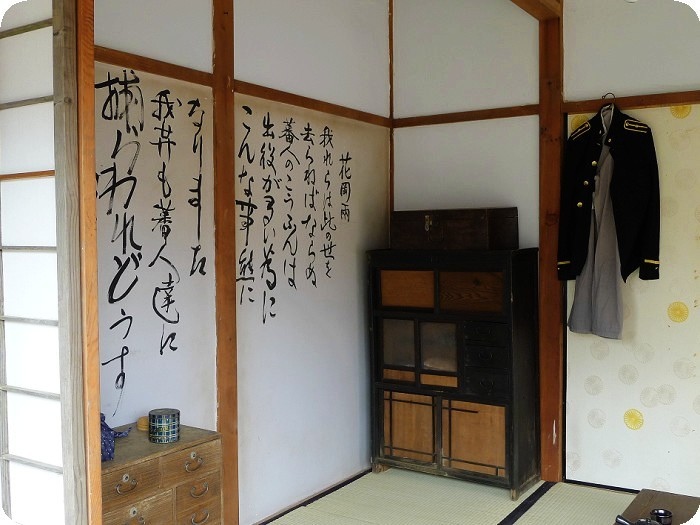 花岡兩
我れらは此の世を
去らねばならぬ
蕃人のこうふんは
出役が多い為に
こんな事件に
なりました
我等も蕃人達に
捕らわれどうす